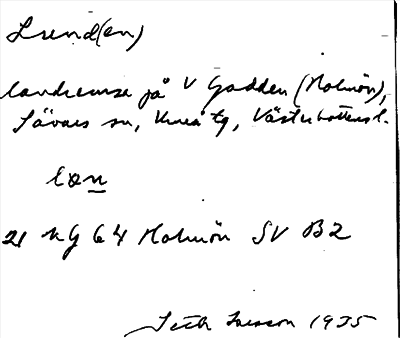 Lund(en)
landremsa på V Gadden (Holmön),
Sävars sn, Umeå tg, Västerbottens l.
lön
21 Kg 64 Holmön SV B2
1935